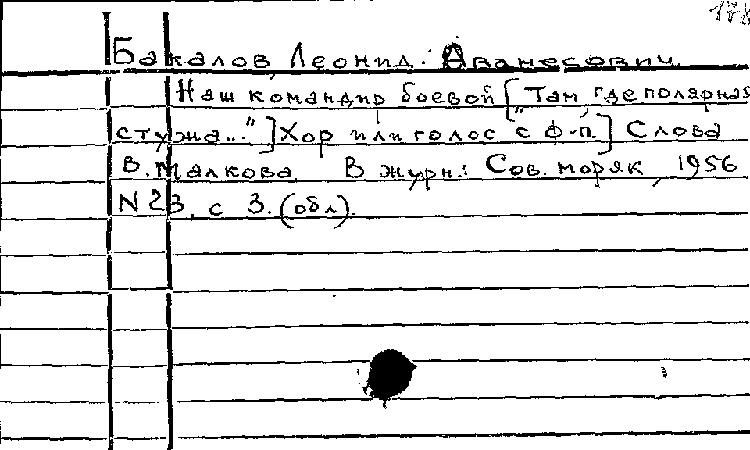 178
Бакалов Леонид Аванесович
Наш командир боевой [„Там, где полярная
стужа..."] Хор или голос с ф-п.] Слова
В. Малкова. В журн.: Сов. моряк, 1956
N 23, с 3. (обл).